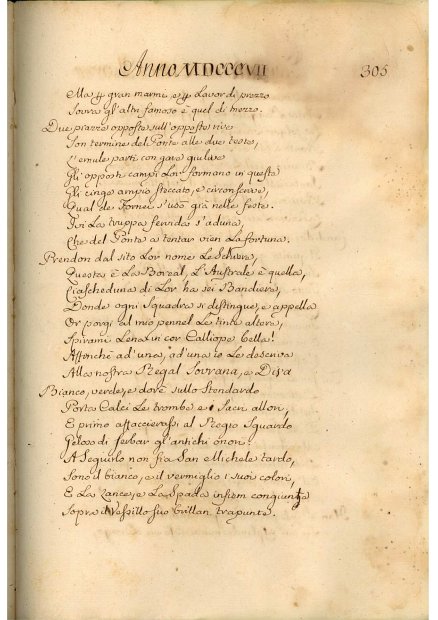 Anno MDCCCVII 305
Ma p gran marmi, e p Lavor di prezzo
Sovra gl'altri famoso è quel di mezzo.
Due piazze opposte sull'opposte rive
Son termine del Ponte alle due teste,
L'emule parti con gara giulive
Gli opposti campi Lor formano in queste
Gli cinge ampio steccato, e circonscrive,
Qual de Tornei s'usò già nelle feste.
Ivi La truppa ferinda s'aduna,
Che del Ponte a tentar vien La fortuna.
Prendon dal sito Lor nome Le Schiere,
Questa è La Boreal, L'Australe è quella,
Ciascheduna di Lor ha sei Bandiere,
Donde ogni Squadra si distingue, e appella
Or porgi al mio pennel Le tinte altere,
Spirami Lena in cor Calliope bella!
Affinchè ad una, ad una io Le descriva
Alla nostra Regal Sovrana, e Diva
Bianco, verde, e dorè sullo Stendardo
Porta Calci Le trombe e i Sacri allori,
E primo affacceraßi al Regio Sguardo
Geloso di serbar gl'antichi onori.
A Seguirlo non fia San Michele tardo,
Sono il bianco, e il vermiglio i suoi colori,
E La Lance, e La Spada insiem congiunta
Sopra il Vessillo suo brillan trapunte.